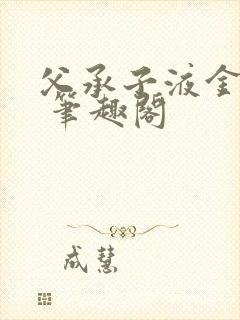 父承子液全
笔趣阁
成慧